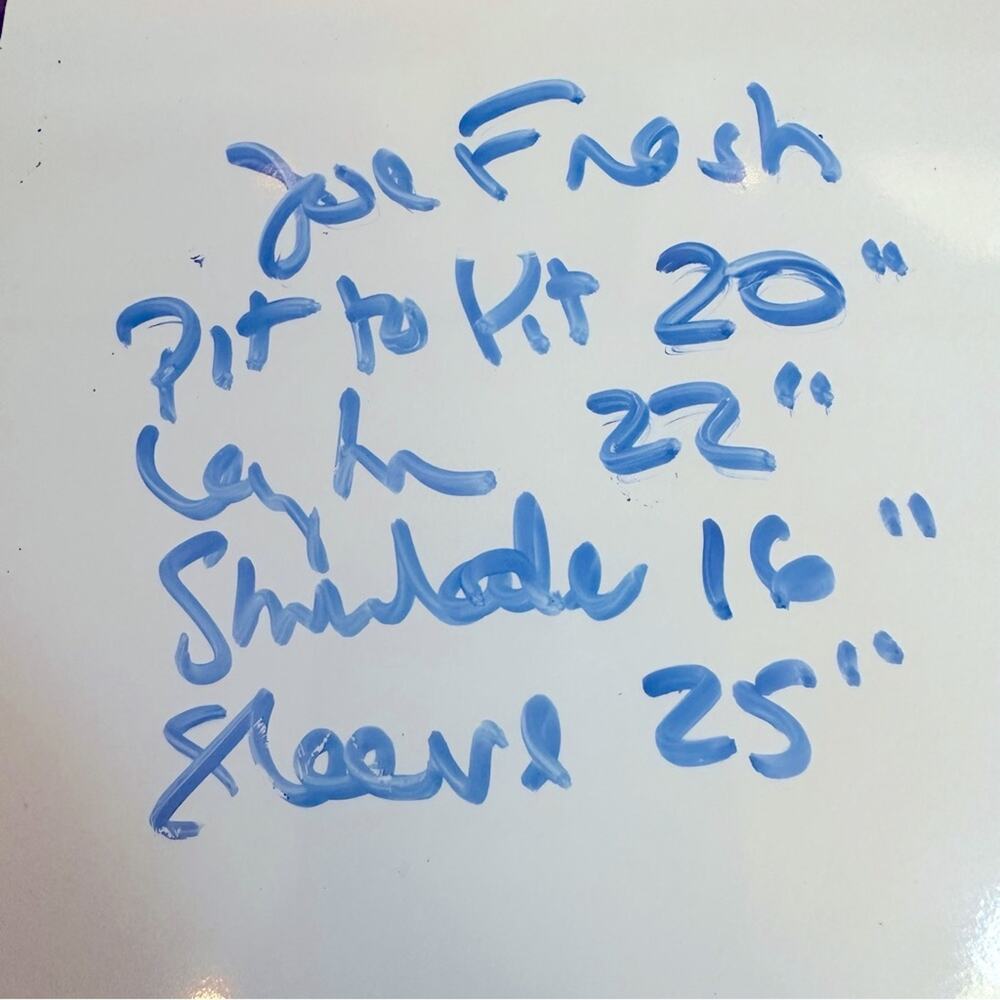 Joe Fresh
Pit to Pit 20"
Length 22"
Shoulder 16"
Sleeve 25"